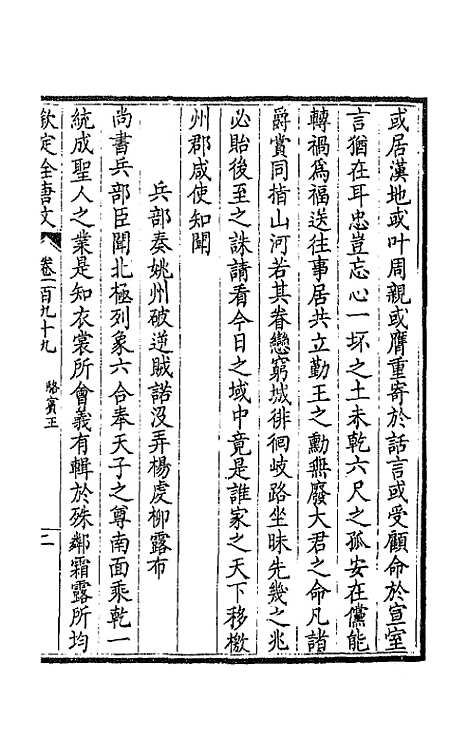 或居漢地或叶周親或膺重寄於話言或受顧命於宣室
言猶在耳忠豈忘心一坏之土未乾六尺之孤安在儻能
轉禍爲福送往事居共立勤王之勳無廢大君之命凡諸
爵賞同指山河若其眷戀窮城徘徊岐路坐昧先幾之兆
必貽後至之誅請看今日之域中竟是誰家之天下移檄
州郡咸使知聞
兵部奏姚州破逆賊諾沒弄楊虔柳露布
尚書兵部臣聞北極列象六合奉天子之尊南面乘乾一
統成聖人之業是知衣裳所會義有輯於殊鄰霜露所均
欽定全唐文
卷一百九十九
駱賓王
二